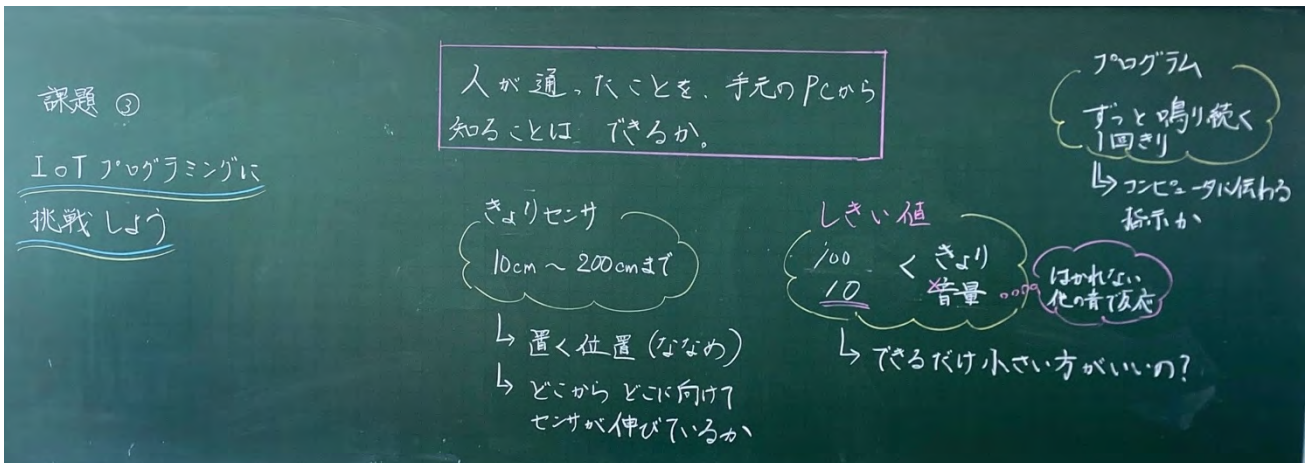 課題 ③
IoTプログラミングに
挑戦しよう
人が通ったことを、手元のPCから
知ることは できるか。
きょりセンサ
10cm 〜 200cmまで
↳ 置く位置(ななめ)
↳ どこから どこに向けて
センサが伸びているか
しきい値
100 < きょり
10 音量
はかれない
他の音で反応
↳ できるだけ小さい方がいいの?
プログラム
ずっと鳴り続く
1回きり
↳ コンピュータに伝わる
指示か